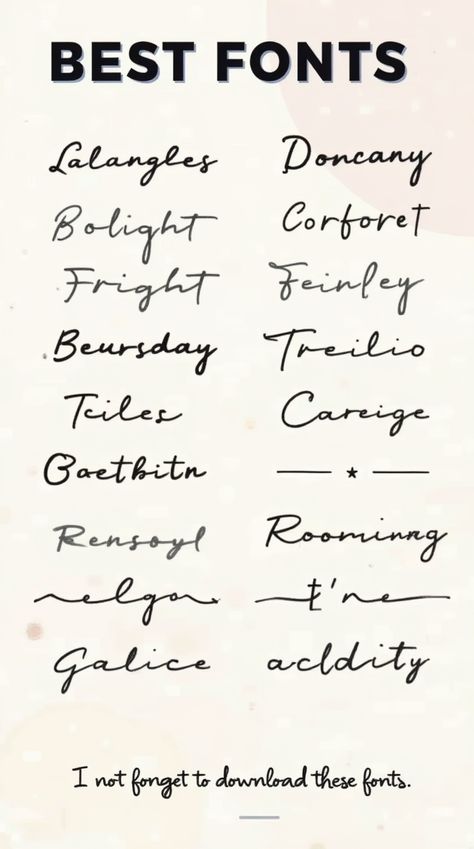 BEST FONTS
Lalangles Doncany
Bolight Corforet
Fright Feinley
Beursday Treilio
Tciles Careige
Baetbitn
Rensoyl Roominrg
elga t'ne
Galice acldity
I not fonget to download these fonts.